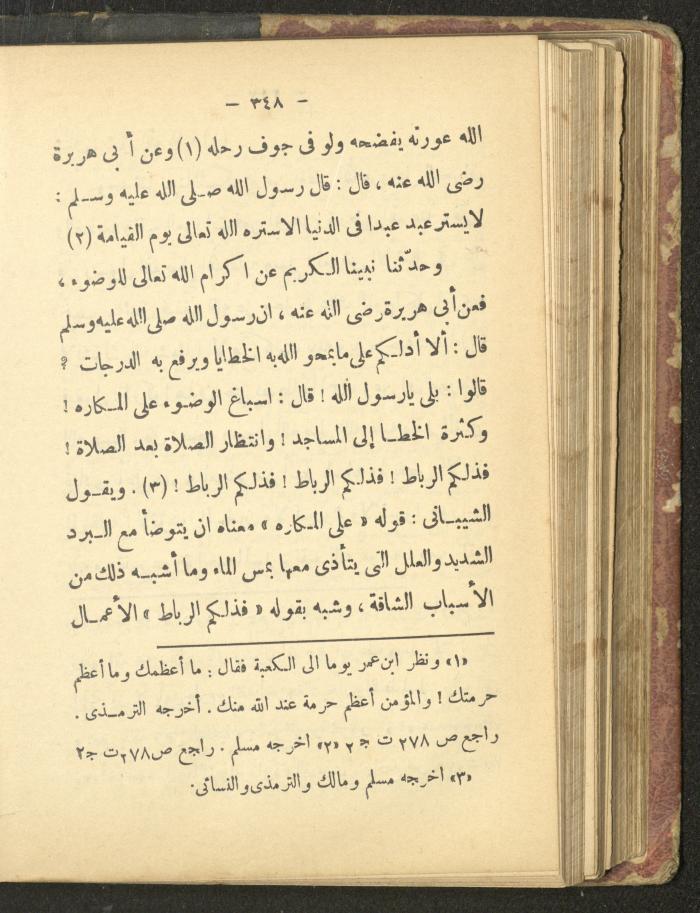 - ٣٤٨ -
الله عورته يفضحه ولو فى جوف رحله (١) وعن أبى هريرة
رضى الله عنه ، قال : قال رسول الله صلى الله عليه وسلم :
لا يستر عبد عبدا فى الدنيا الا ستره الله تعالى يوم القيامة (٢)
وحدّثنا نبينا الكريم عن اكرام الله تعالى للوضوء ،
فعن أبى هريرة رضى الله عنه ، ان رسول الله صلى الله عليه وسلم
قال : ألا أدلكم على ما يمحو الله به الخطايا ويرفع به الدرجات ؟
قالوا : بلى يا رسول الله ! قال : اسباغ الوضوء على المكاره !
وكثرة الخطا إلى المساجد ! وانتظار الصلاة بعد الصلاة !
فذلكم الرباط ! فذلكم الرباط ! فذلكم الرباط ! (٣) . ويقول
الشيبانى : قوله « على المكاره » معناه ان يتوضأ مع البرد
الشديد والعلل التى يتأذى معها بمس الماء وما أشبه ذلك من
الأسباب الشاقة ، وشبه بقوله « فذلكم الرباط » الأعمال
«١» ونظر ابن عمر يوما الى الكعبة فقال : ما أعظمك وما أعظم
حرمتك ! والمؤمن أعظم حرمة عند الله منك . أخرجه الترمذى .
راجع ص ٢٧٨ ت ج ٢ «٢» اخرجه مسلم . راجع ص ٢٧٨ ت ج ٢
«٣» اخرجه مسلم ومالك والترمذى والنسائى .